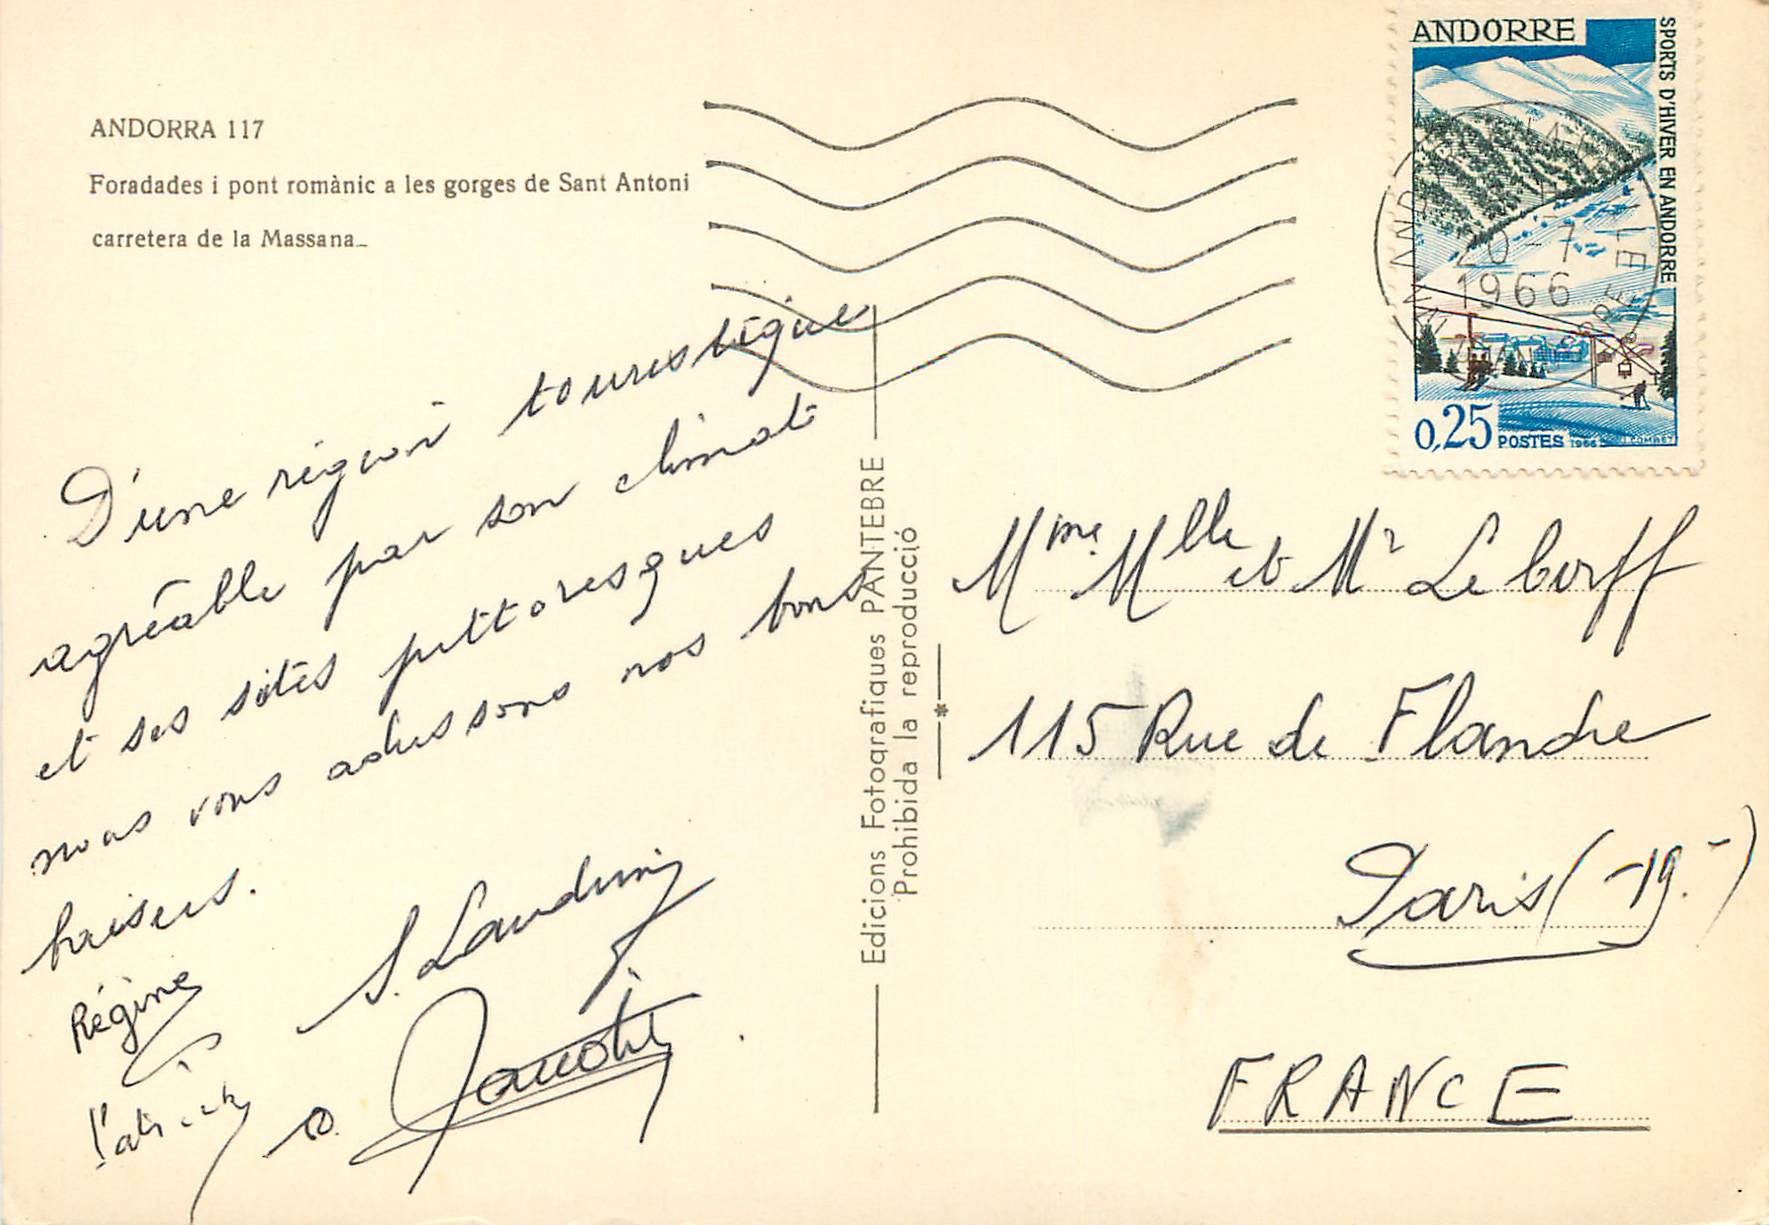 ANDORRA 117
Foradades i pont romànic a les gorges de Sant Antoni
carretera de la Massana
D'une région touristique
agréable par son climat
et ses sites pittoresques
nous vous adressons nos bons
baisers.
Régine
Patrick
S.
Edicions Fotogràfiques PANTEBRE
Prohibida la reproducció
ANDORRE
SPORTS D'HIVER EN ANDORRE
0,25 POSTES 1966 J. COMBET
ANDORRE LA VIEILLE
20-7
1966
Mme. Mlle et Mr Le Corff
115 Rue de Flandre
Paris (-19-)
FRANCE